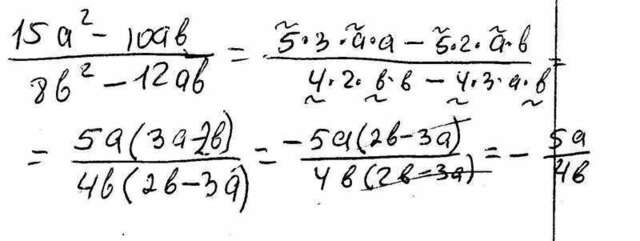 (15a² - 10ab)/(8b² - 12ab) = (5·3·a·a - 5·2·a·b)/(4·2·b·b - 4·3·a·b) =
= (5a(3a-2b))/(4b(2b-3a)) = (-5a(2b-3a))/(4b(2b-3a)) = - 5a/4b